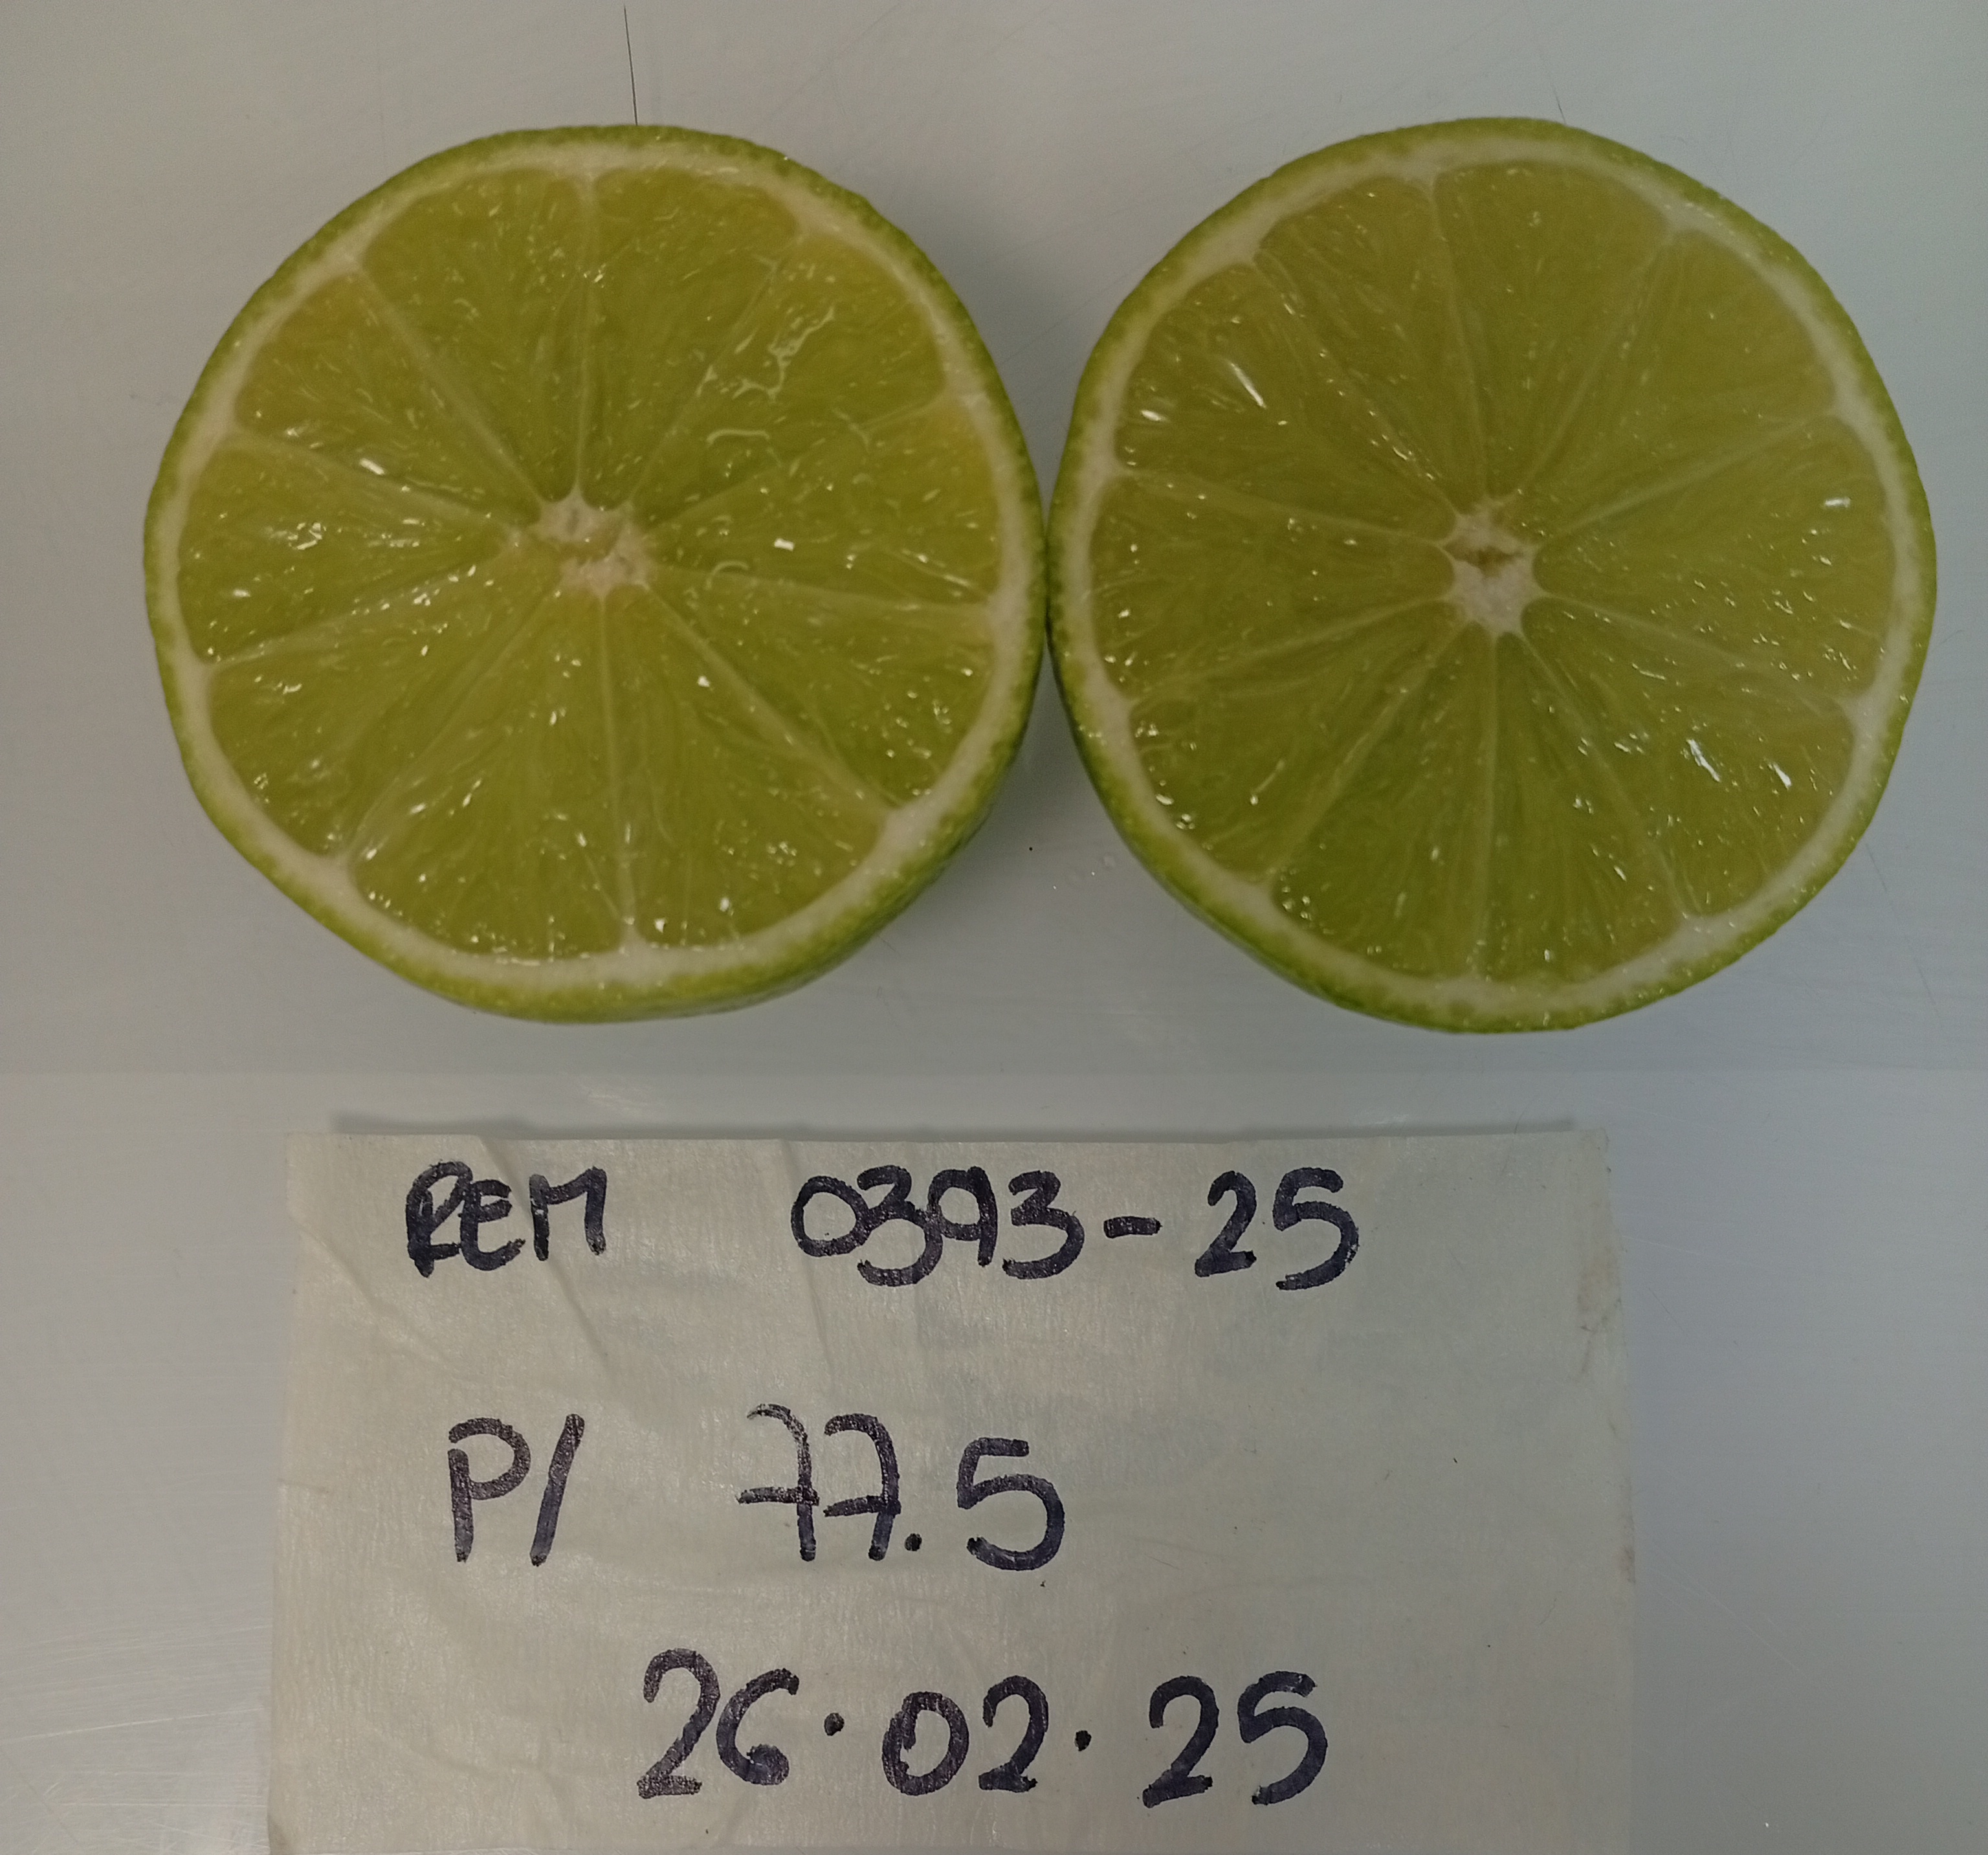 REM 0393-25
P/ 77.5
26.02.25